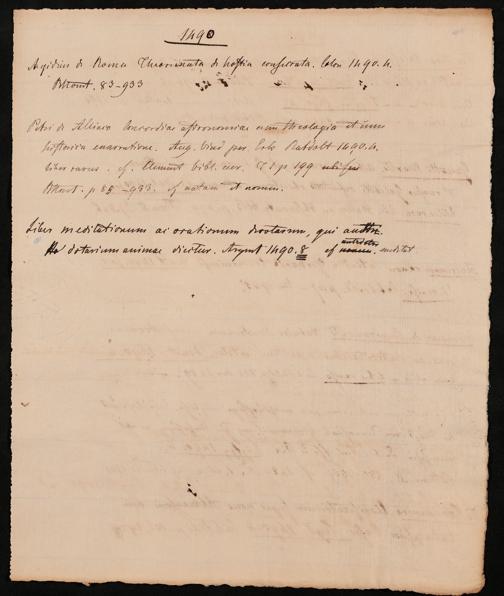 1490
Aegidius de Roma Theoremata de hostia consecrata. Colon 1490. 4.
83-933
Petri de Alliaco Concordia astronomiae cum theologia et cum
historica narratione. Aug. Vind per Erh. Ratdolt 1490. 4.
liber rarus. cf. Clement bibl. cur. T. I. p 199
p 85 -933. cf notam et nomen.
Liber meditationum ac orationum devotarum, qui
dotarium animae dicitur. Argent 1490. 8 cf